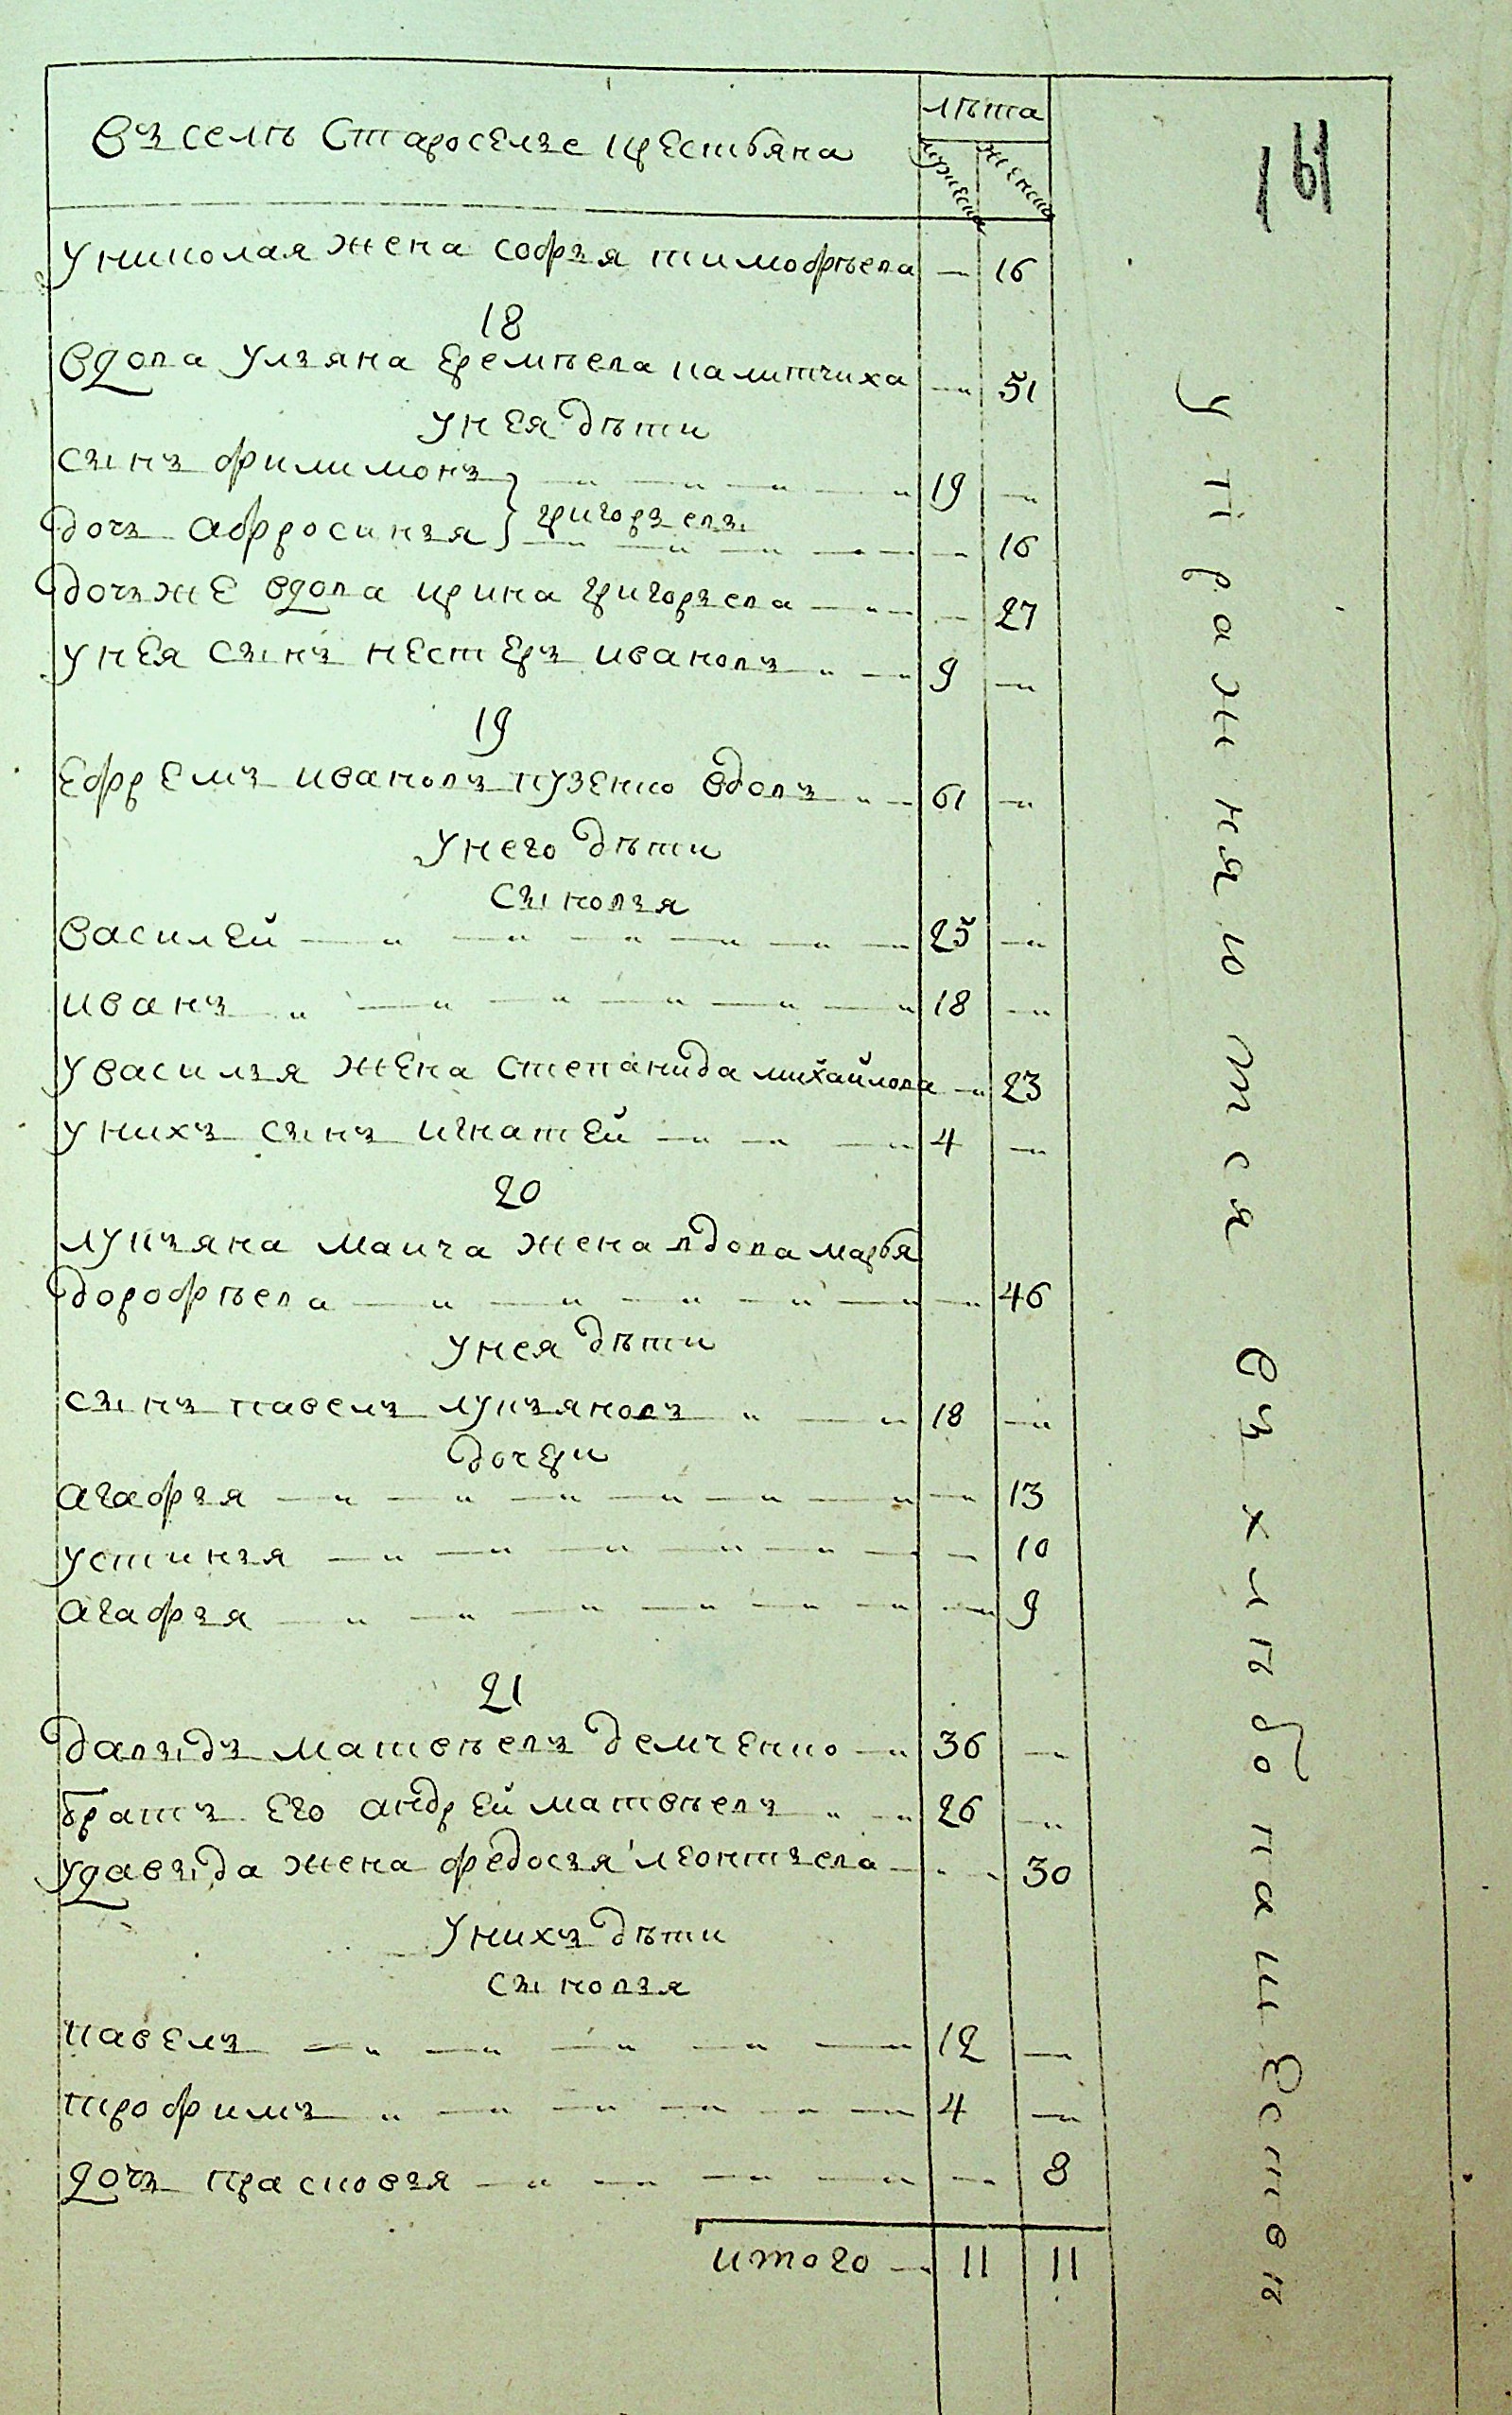 въ селѣ Староселье крестьяна
лѣта
мужеска
женска
161
у николая жена софья тимофѣева — 16
18
вдова ульяна еремѣева калитчиха — 51
у нея дѣти
сынъ филимонъ 19 —
григорьевы
дочь афросинья — 16
дочь же вдова ирина григорьева — 27
у нея сынъ нестеръ ивановъ 9 —
19
ефремъ ивановъ пузенко вдовъ 61 —
у него дѣти
сыновья
василей 25 —
иванъ 18 —
у василья жена степанида михайлова — 23
у нихъ сынъ игнатей 4 —
20
лукьяна маича жена вдова марья
дорофѣева — 46
у нея дѣти
сынъ павелъ лукьяновъ 18 —
дочери
агафья — 13
устинья — 10
агафья — 9
21
давыдъ матвѣевъ демченко 36 —
братъ его андрей матвѣевъ 26 —
у давыда жена федосья леонтьева — 30
у нихъ дѣти
сыновья
павелъ 12 —
трофимъ 4 —
дочь прасковья — 8
итого — 11 11
упражняются въ хлѣбопашествѣ